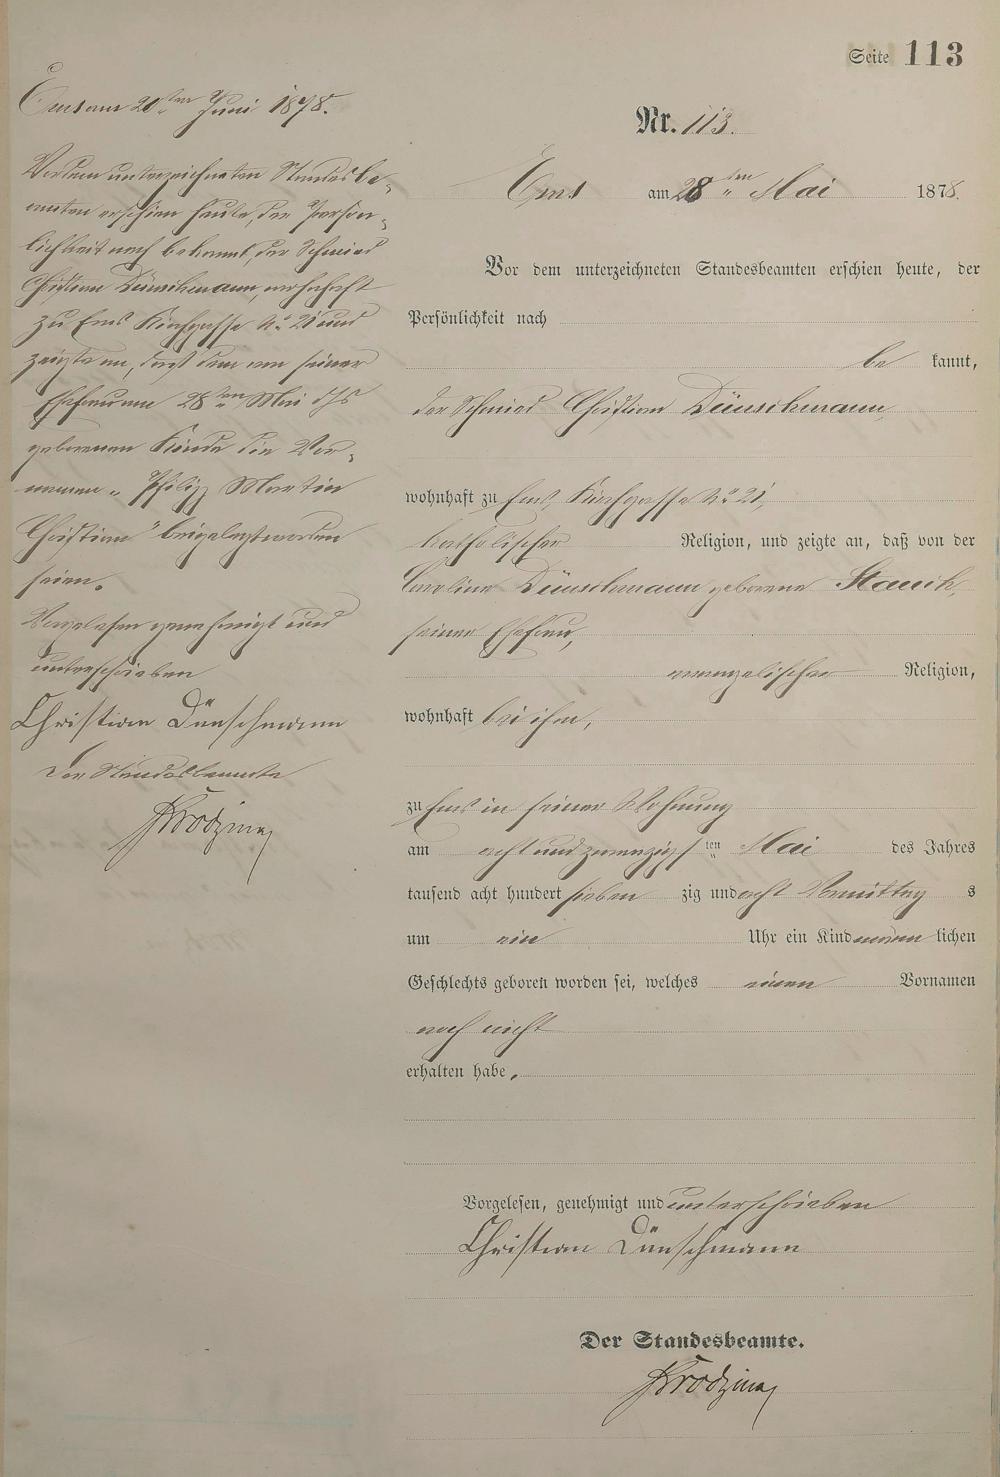 Seite 113
Ems am 20ten Juni 1878.
Vor dem unterzeichneten Standesbe-
amten erschien heute, der Persön-
lichkeit nach bekannt, der Schmied
Christian Dünschmann, wohnhaft
zu Ems Kirchgasse No 21 und
zeigte an, daß dem von seiner
Ehefrau am 28ten Mai d Js
geborenen Kinde die Vor-
namen "Philipp Martin
Christian" beigelegt worden
seien.
Vorgelesen genehmigt und
unterschrieben
Christian Dünschmann
Der Standesbeamte
Nr. 113.
Ems am 28ten Mai 1878.
Vor dem unterzeichneten Standesbeamten erschien heute, der
Persönlichkeit nach
be kannt,
der Schmied Christian Dünschmann,
wohnhaft zu Ems, Kirchgasse No 21,
katholischer Religion, und zeigte an, daß von der
Caroline Dünschmann geborene Stauch,
seiner Ehefrau,
evangelischer Religion,
wohnhaft bei ihm,
zu Ems in seiner Wohnung
am acht und zwanzigsten Mai des Jahres
tausend acht hundert sieben zig und acht Vormittag s
um ein Uhr ein Kind männ lichen
Geschlechts geboren worden sei, welches einen Vornamen
noch nicht
erhalten habe.
Vorgelesen, genehmigt und unterschrieben
Christian Dünschmann
Der Standesbeamte.